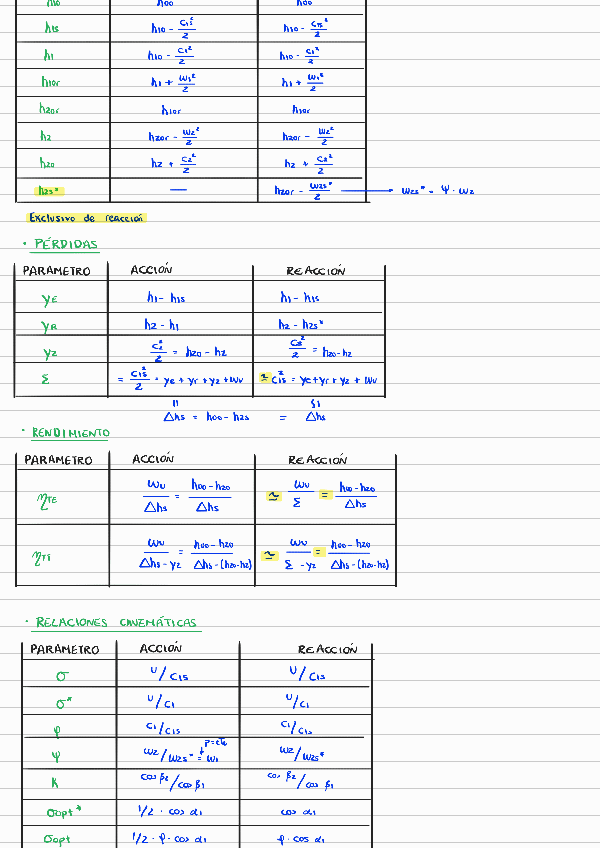 h10 h00 h00
h1s h10 - c1s²/2 h10 - c1s²/2
h1 h10 - c1²/2 h10 - c1²/2
h10r h1 + w1²/2 h1 + w1²/2
h20r h10r h10r
h2 h20r - w2²/2 h20r - w2²/2
h20 h2 + c2²/2 h2 + c2²/2
h2s* — h20r - w2s*²/2 → w2s* = Ψ · w2
Exclusivo de reacción
· PÉRDIDAS
PARAMETRO ACCIÓN REACCIÓN
YE h1 - h1s h1 - h1s
YR h2 - h1 h2 - h2s*
Y2 c2²/2 = h20 - h2 c2²/2 = h20 - h2
Σ = c1s²/2 = ye + yr + y2 + wu ≃ c1s² = ye + yr + y2 + wu
Δhs = h00 - h2s = Δhs
· RENDIMIENTO
PARAMETRO ACCIÓN REACCIÓN
ηTE wu/Δhs = h00 - h20/Δhs ≃ wu/Σ = h00 - h20/Δhs
ηTT wu/Δhs - y2 = h00 - h20/Δhs - (h20 - h2) ≃ wu/Σ - y2 = h00 - h20/Δhs - (h20 - h2)
· RELACIONES CINEMÁTICAS
PARAMETRO ACCIÓN REACCIÓN
σ U/C1s U/C1s
σ* U/C1 U/C1
φ C1/C1s C1/C1s
p=cte
Ψ w2/w2s* = w1 w2/w2s*
K cos β2/cos β1 cos β2/cos β1
σopt* 1/2 · cos α1 cos α1
σopt 1/2 · φ · cos α1 φ · cos α1